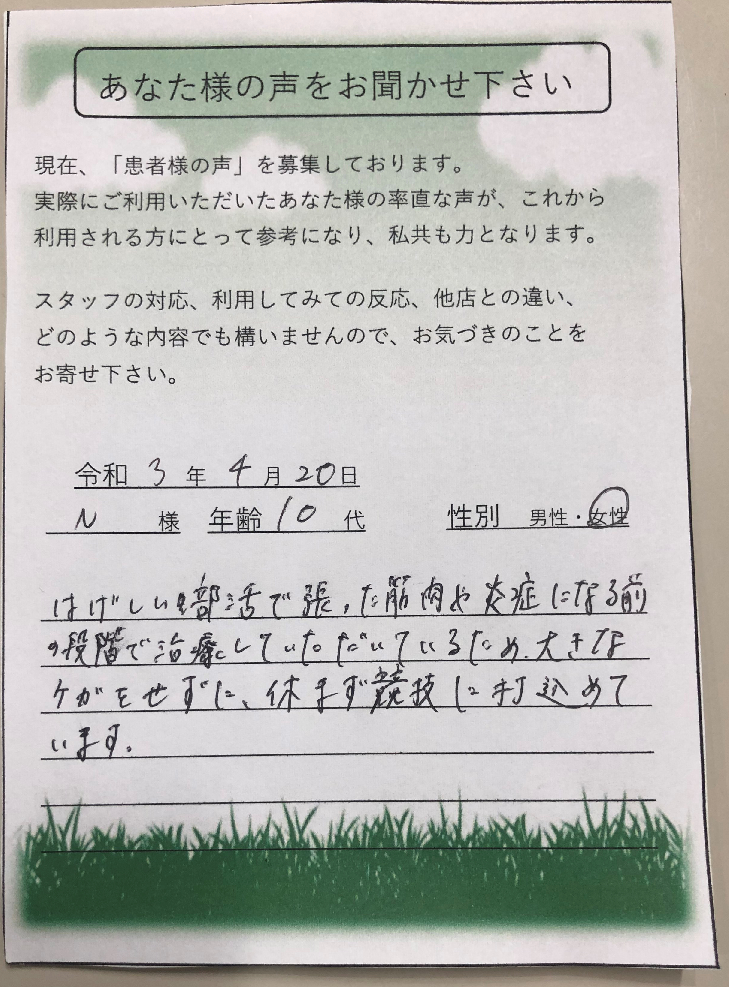 あなた様の声をお聞かせ下さい
現在、「患者様の声」を募集しております。
実際にご利用いただいたあなた様の率直な声が、これから
利用される方にとって参考になり、私共も力となります。
スタッフの対応、利用してみての反応、他店との違い、
どのような内容でも構いませんので、お気づきのことを
お寄せ下さい。
令和 3 年 4 月 20日
N 様 年齢 10 代 性別 男性・女性
はげしい部活で張った筋肉や炎症になる前
の段階で治療していただいているため、大きな
ケガをせずに、休まず競技に打込めて
います。